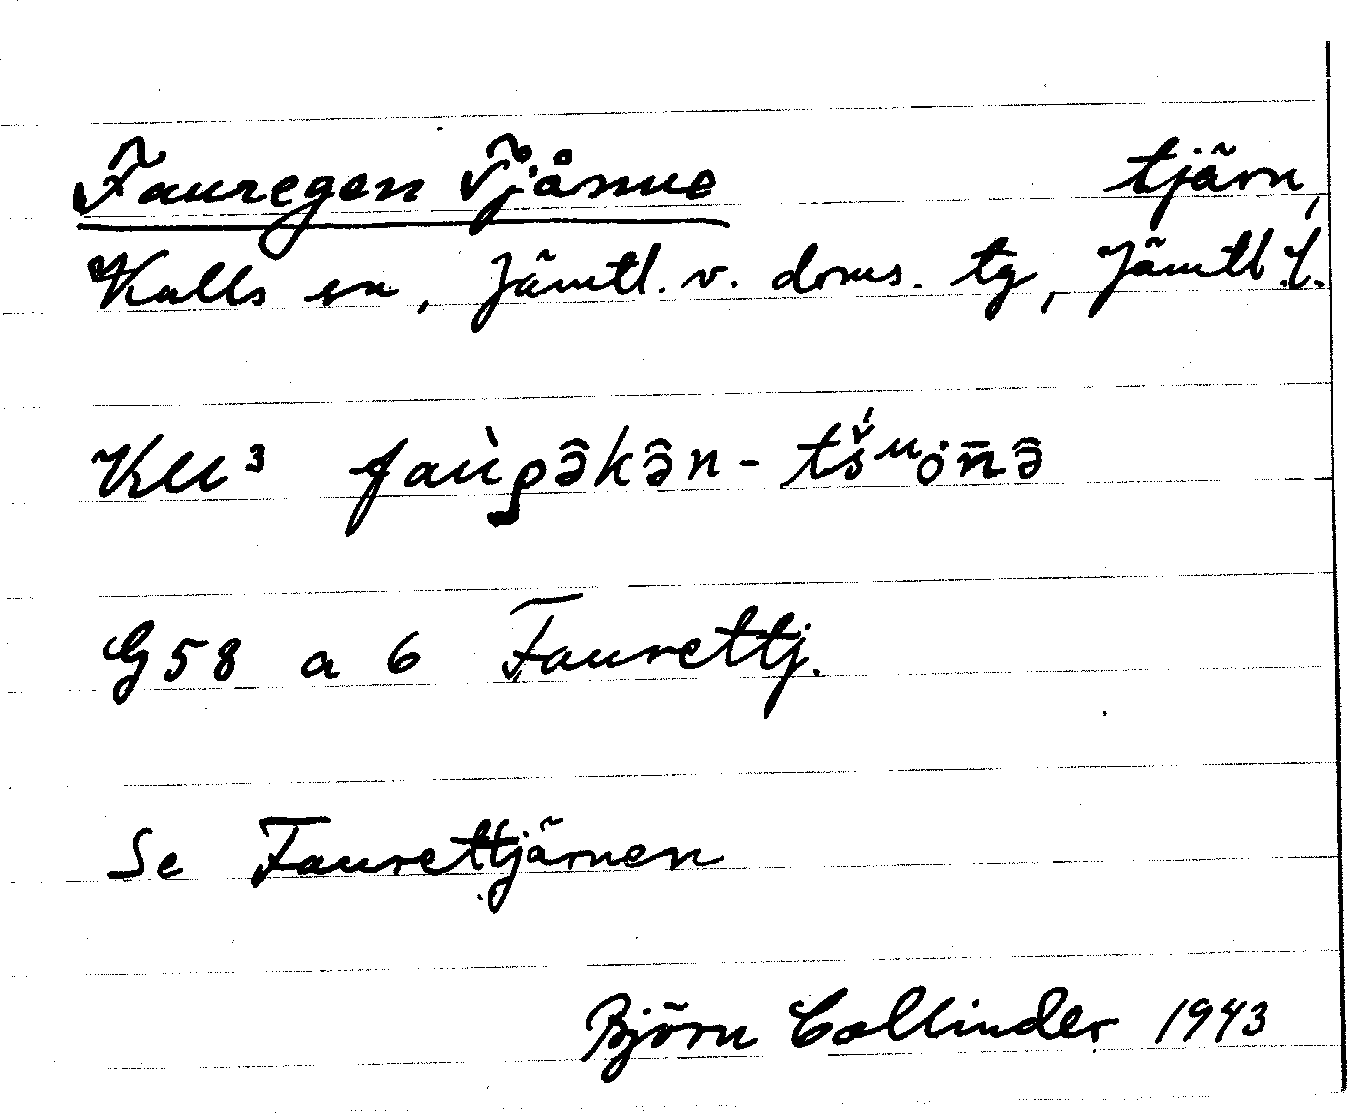 Fauregen Tjånne tjärn,
Kalls sn, Jämtl. v. doms. tg, Jämtl. l.
KU³ fau̇̀ρə̂kə̂n-tš́ᵘȯn̄ə̂
G 58 a 6 Faurettj.
Se Faurettjärnen
Björn Collinder 1943